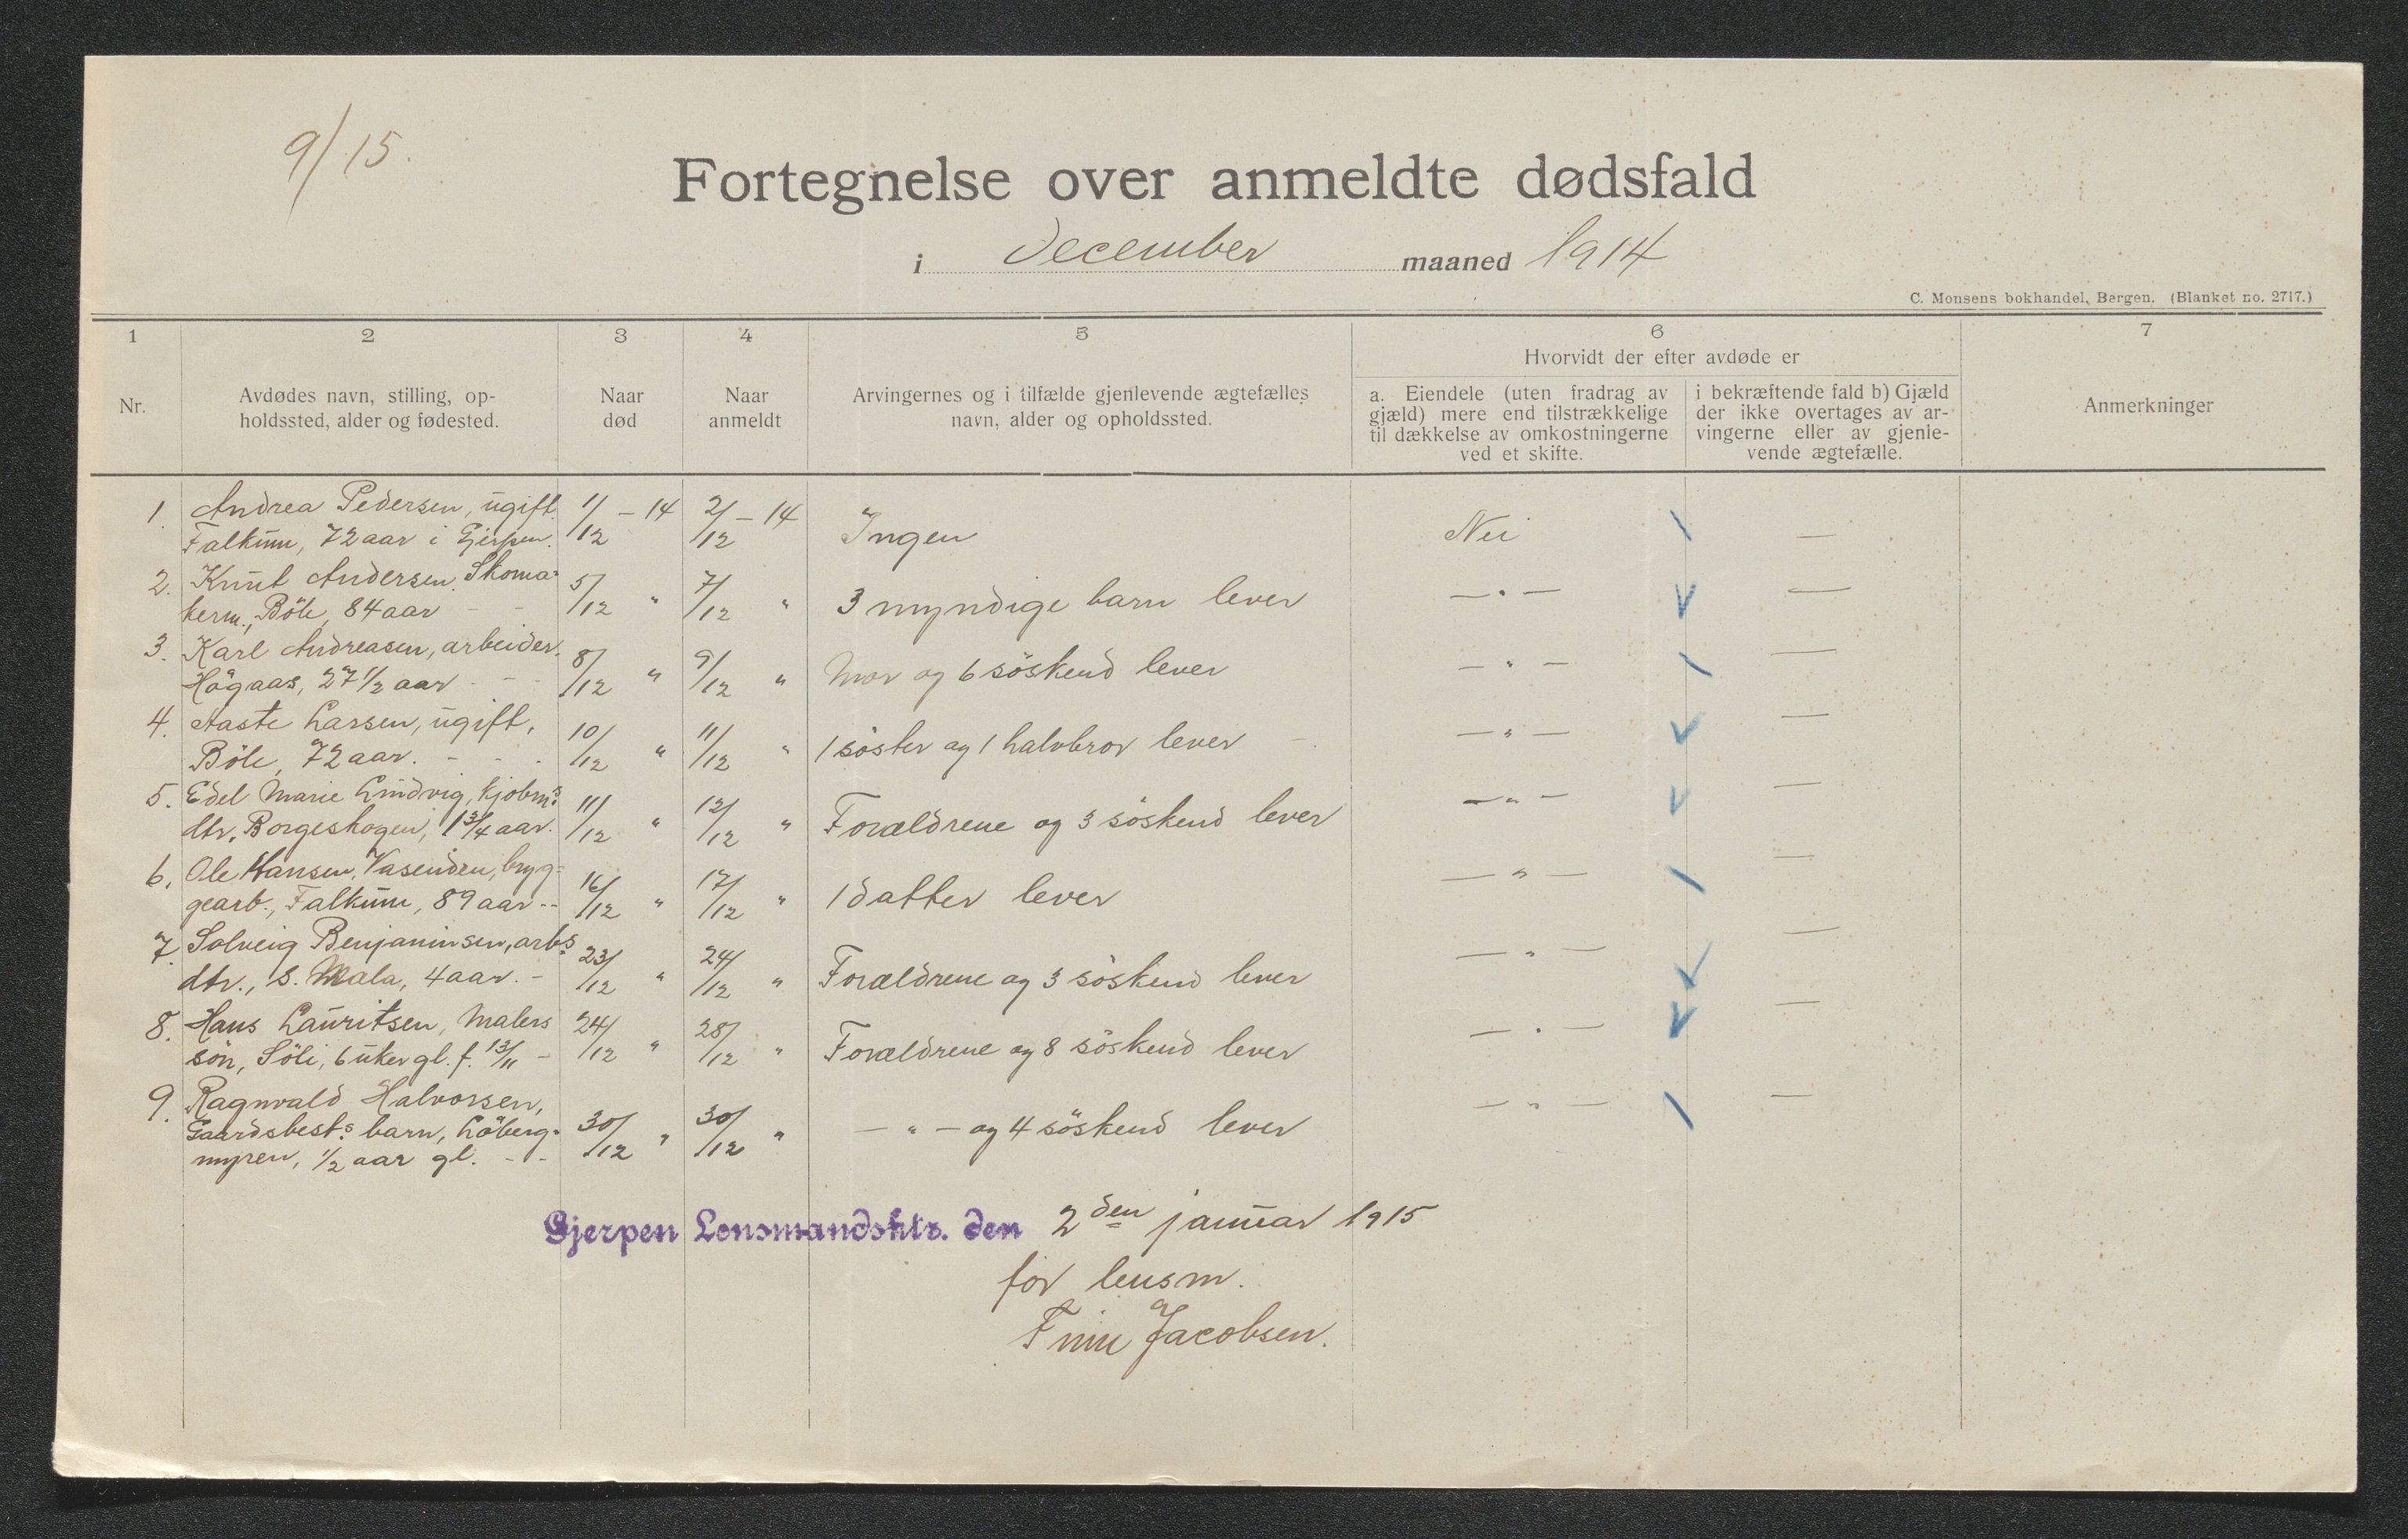 9/15.
Fortegnelse over anmeldte dødsfald
i december maaned 1914
C. Monsens bokhandel, Bergen. (Blanket no. 2717.)
1 2 3 4 5 6 7
Hvorvidt der efter avdøde er
Nr.
Avdødes navn, stilling, op-
holdssted, alder og fødested.
Naar
død
Naar
anmeldt
Arvingernes og i tilfælde gjenlevende ægtefælles
navn, alder og opholdssted.
a. Eiendele (uten fradrag av
gjæld) mere end tilstrækkelige
til dækkelse av omkostningerne
ved et skifte.
i bekræftende fald b) Gjæld
der ikke overtages av ar-
vingerne eller av gjenle-
vende ægtefælle.
Anmerkninger
1. Andrea Pedersen, ugift. 1/12 - 14 2/12 - 14 Ingen Nei —
Falkum, 72 aar i Gjerpen.
2. Knut Andersen. Skoma-
kerm., Böle, 84 aar - - 5/12 " 7/12 " 3 myndige barn lever — " — —
3. Karl Andreasen, arbeider.
Högaas, 27 1/2 aar - - - 8/12 " 9/12 " Mor og 6 söskend lever — " — —
4. Aaste Larsen, ugift,
Böle, 72 aar. - - - 10/12 " 11/12 " 1 söster og 1 halvbror lever - — " — —
5. Edel Marie Lindvig, kjöbms
dtr. Borgeskogen, 1 3/4 aar. 11/12 " 12/12 " Forældrene og 3 söskend lever — " — —
6. Ole Hansen, Vasenden, bryg-
gearb., Falkum, 89 aar -- 16/12 " 17/12 " 1 datter lever — " — —
7. Solveig Benjaminsen, arbs
dtr., S. Mæla, 4 aar. - 23/12 " 24/12 " Forældrene og 3 söskend lever — " — —
8. Hans Lauritsen, Malers
sön, Söli, 6 uker gl. f. 13/11 - 24/12 " 28/12 " Forældrene og 8 söskend lever — " — —
9. Ragnvald Halvorsen,
Gaardsbests barn, Löberg-
myren, 1/2 aar gl. - - 30/12 " 30/12 " — " — og 4 söskend lever — " — —
Gjerpen Lensmandsktr. den 2den januar 1915
for lensm.
Finn Jacobsen.